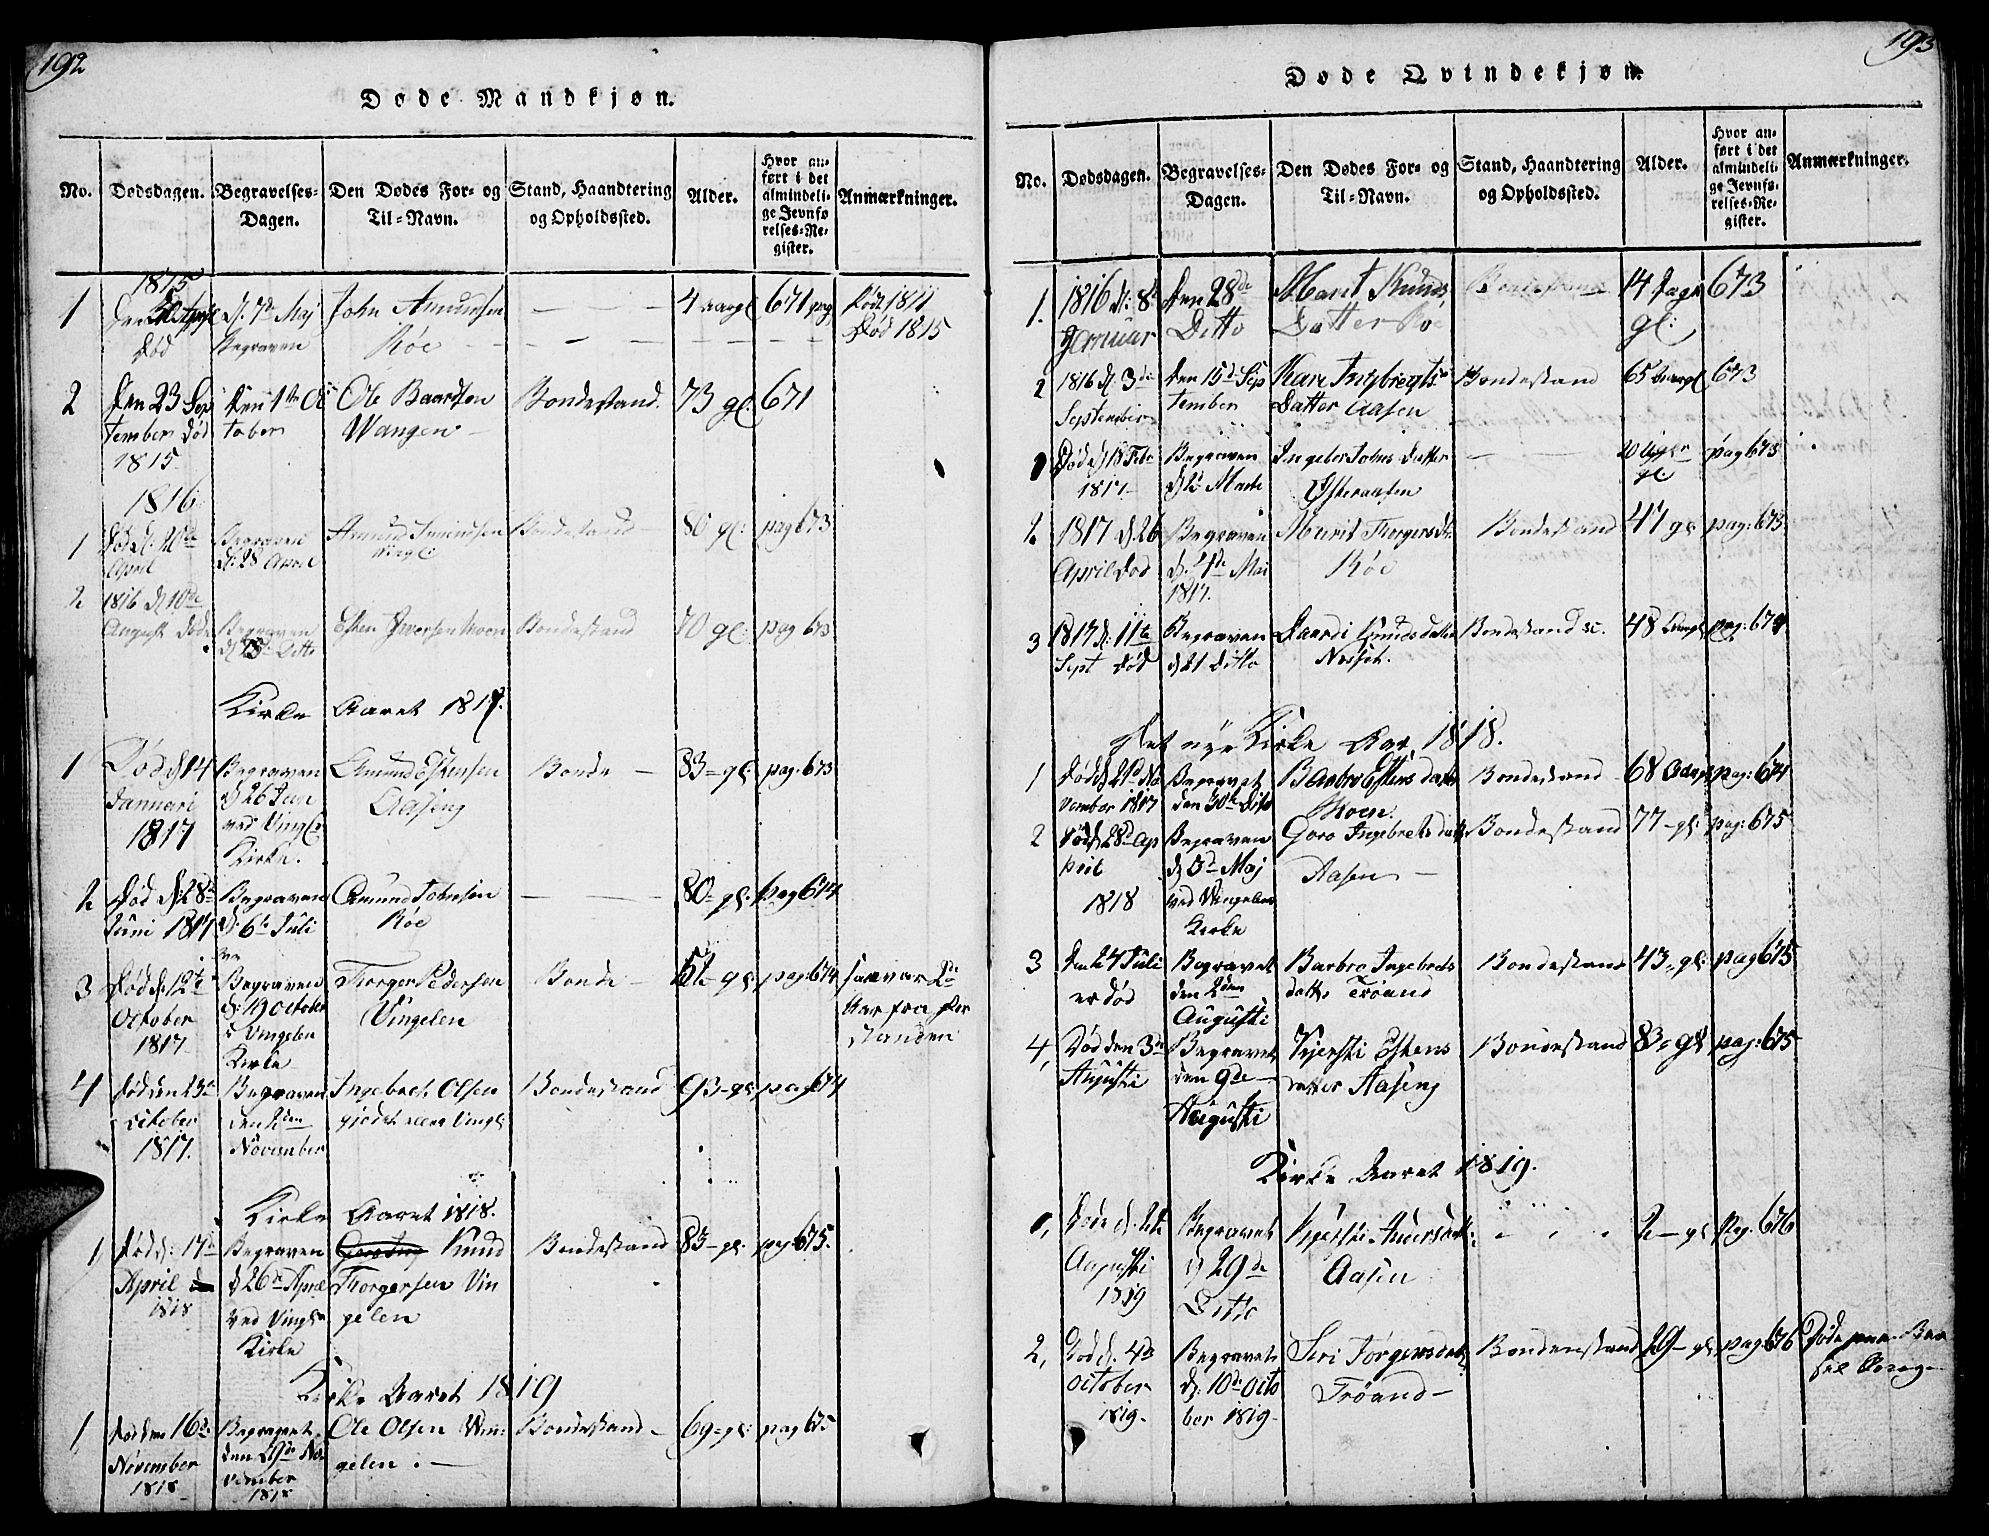 192
Døde Mandkjøn.
No.
Dødsdagen.
Begravelses-
Dagen.
Den Dødes For- og
Til-Navn.
Stand, Haandtering
og Opholdssted.
Alder.
Hvor an-
ført i det
almindeli-
ge Jevnfø
relses-Re-
gister.
Anmærkninger.
1815
1
Død
d. 7de Maj
Begraven
John Amundsen
Röe
4 aar gl
671 pag
Død 1815
2
Den 23 Sep
tember Død
1815
Den 1te Oc
tober
Ole Baardsen
Wangen
Bondestand.
73 gl:
671
1816
1
Død d: 20de
April
Begraven
d: 28 April
Amund
Bondestand
80 gl:
pag 673
2
1816 d 10de
August Døde
Begraven
d 18 Ditto
Esten Iversen Moen
Bondestand
70 gl:
pag 673
Kirke Aaret 1817.
1
Død d 14
Januari
1817
Begraven
d 26 Jan
ved Vingl
Kirke.
Amund Estensen
Aaseng
Bonde
83 - gl:
pag: 673
2
Død d: 28de
Juni 1817
Begraven
d: 6te Juli
Amund Johnsen
Röe
80 - gl:
pag 674
3
Død d: 12te
October
1817
Begraven
d: 19 October
Vingelen
Kirke
Thorger Pedersen
Vingelen
Bonde
pag: 674
4
Død den 23de
October
1817.
Begraven
den 2den
November
Ingebret Olsen
Bondestand
93 - gl:
pag 674
Kirke Aaret 1818.
1
Død d: 17de
April
1818
Begraven
d 26de April
ved Vingl
Kirke
Knud
Thorgersen Vin
gelen
Bondestand
83 - gl:
pag 675.
Kirke Aaret 1819
1
Død den 16de
November
1818
Begravet
den 29de No
vember
1818
Ole Olsen Vin:
gelen.
Bondestand
69 - gl:
pag 675
193
Døde Qvindekjøn.
No.
Dødsdagen.
Begravelses-
Dagen.
Den Dødes For- og
Til-Navn.
Stand, Haandtering
og Opholdssted.
Alder.
Hvor an-
ført i det
almindeli-
ge Jevnfø-
relses-Re-
gister.
Anmærkninger.
1.
1816 d: 8de
Januar
Den 28de
Ditto
Marit Knuds
Datter Rö
14 Dage
gl:
673
2
1816 d. 3de
September
Den 15de Sep
tember
Kari Ingbregts
Datter Aasen
Bondestand
65 Aar gl
673
1
Død d 18 Feb
1817
Begraven
d 2 Marti
Ingebor Johns Datter
Østeraasen
20 Uger
gl.
pag 673
2
1817 d 26
April Død
Begraven
d. 4de Mai
1817.
Marit Thorgersdr
Röe
Bondestand
47 gl
pag: 673
3
1817 d: 11te
Sept Død
Begraven
d 21 Ditto
Knudsdatter
Bondestand
48
pag: 674
Det nye Kirke Aar 1818.
1
vember 1817
Begravet
den 30te Dito
Barbro Estens datter
Moen.
Bondestand
68
pag: 674
2
Død d 28de Ap
pril
1818
Begraven
d 3de Maj
ved Vingelens
Kirke
Goro Ingebrets datter
Aasen
Bondestand
77 - gl:
pag: 675
3
Den 24 Juli
er død
Begravet
den 2den
Augusti
Barbro Ingebrets
datter Tröand
Bondestand
43 - gl:
pag 675
4,
Død den 3de
Augusti
Begravet
den 9de
Augusti
Kjersti Estens
datter Aaseng
Bondestand
83 gl
pag: 675
Kirke Aaret 1819.
1,
Augusti
1819
Begravet
d 29de
Ditto
Kjersti
Aasen
2 - gl
Pag. 676
2,
Død d. 4de
October
1819.
Begravet
d: 10de Octo
ber 1819
Siri Jörgensdatter
Tröand
Bondenstand
29 - gl
pag 676
Døde